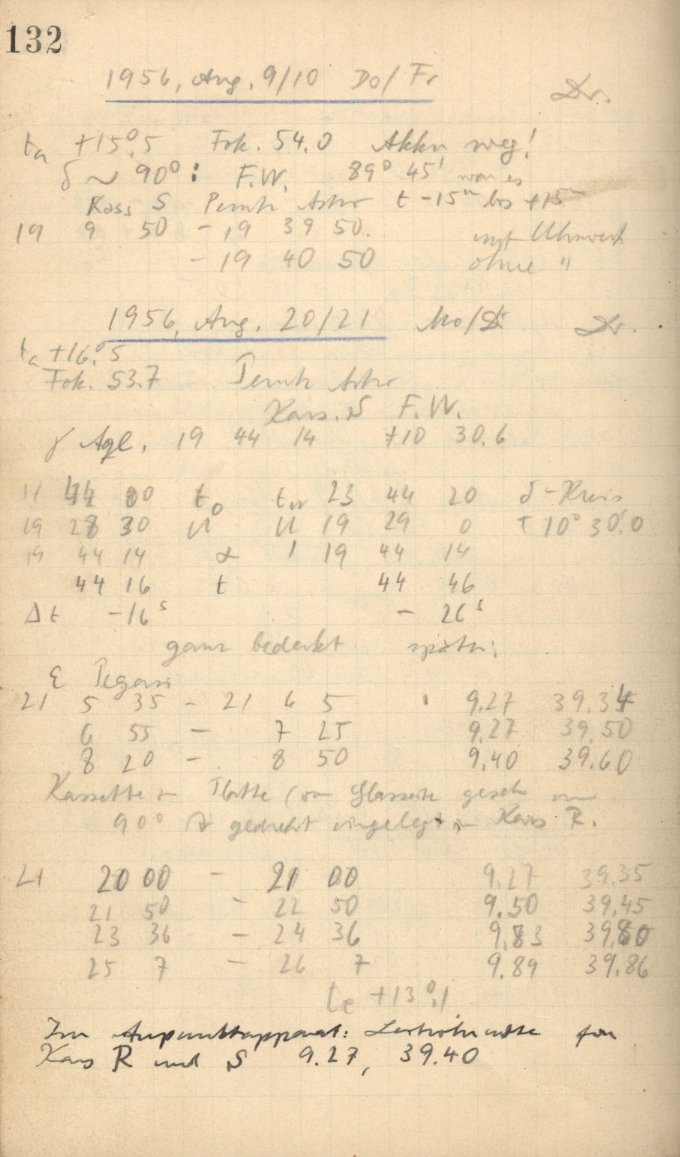 132
1956, Aug. 9/10 Do/Fr Dr.
ta +15°.5 Fok. 54.0 Akku weg!
δ ~ 90° : F.W. 89° 45' war es
Kass S Perutz Astro t -15m bis +15m
19 9 50 - 19 39 50. mit Uhrwerk
- 19 40 50 ohne "
1956, Aug. 20/21 Mo/Di Dr.
ta +16°.5
Fok. 53.7 Perutz Astro
Kass. S F.W.
γ Aql. 19 44 14 +10 30.6
44 00 to tw 23 44 20 δ-Kreis
19 28 30 U U 19 29 0 +10° 30'.0
19 44 14 α 19 44 14
44 16 t 44 46
Δt -16s - 26s
ganz bedeckt später:
ε Pegasi
21 5 35 - 21 6 5 9.27 39.34
6 55 - 7 25 9.27 39.50
8 20 - 8 50 9.40 39.60
Kassette Platte (von Glasseite gesehen um
90° gedreht eingelegt in Kass R.
21 20 00 - 21 00 9.27 39.35
21 50 - 22 50 9.50 39.45
23 36 - 24 36 9.83 39.80
25 7 - 26 7 9.89 39.86
te +13°.1
Im für
Kass R und S 9.27, 39.40